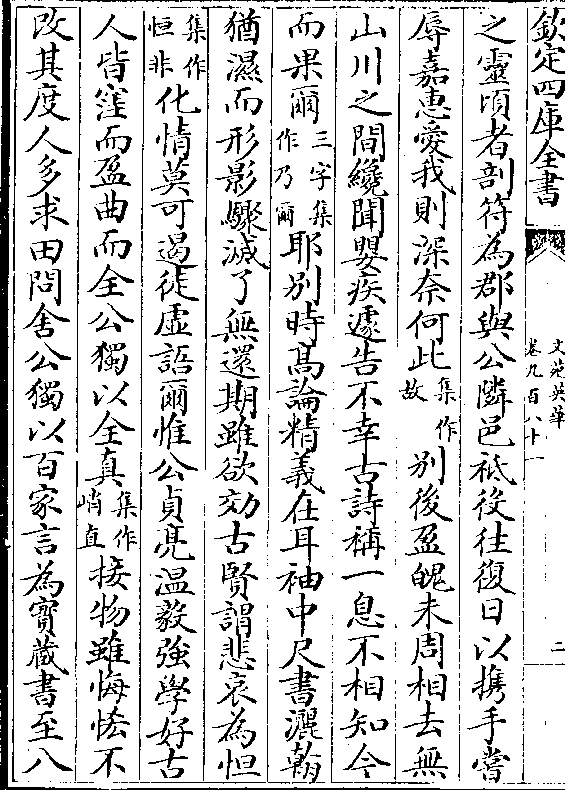 欽定四庫全書
文苑英華
卷九百八十一
二
之靈頃者剖符為郡與公隣邑袛役往復日以携手嘗
辱嘉惠愛我則深奈何此集作故別後盈魄未周相去無
山川之間纔聞嬰疾遽告不幸古詩稱一息不相知今
而果爾三字集作乃爾耶别時髙論精義在耳袖中尺書灑翰
猶濕而形影驟滅了無還期雖欲効古賢謂悲哀為怛
集作恒非化情莫可遏徒虚語爾惟公貞亮温毅強學好古
人皆窪而盈曲而全公獨以全真集作峭直接物雖悔恡不
改其度人多求田問舍公獨以百家言為寳藏書至八